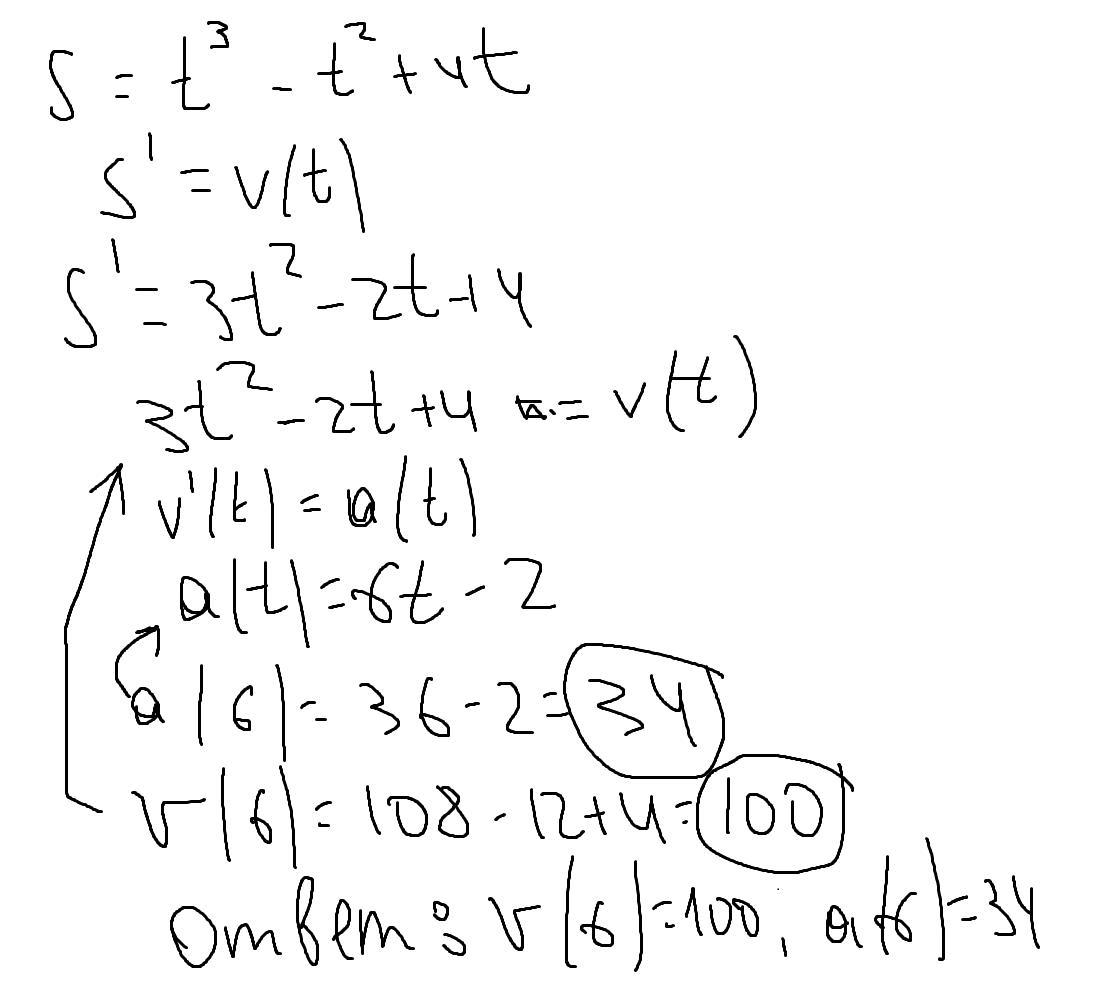 S = t³ - t² + 4t
S' = v(t)
S' = 3t² - 2t + 4
3t² - 2t + 4 = v(t)
v'(t) = a(t)
a(t) = 6t - 2
a(6) = 36 - 2 = 34
v(6) = 108 - 12 + 4 = 100
Ответ: v(6) = 100; a(6) = 34